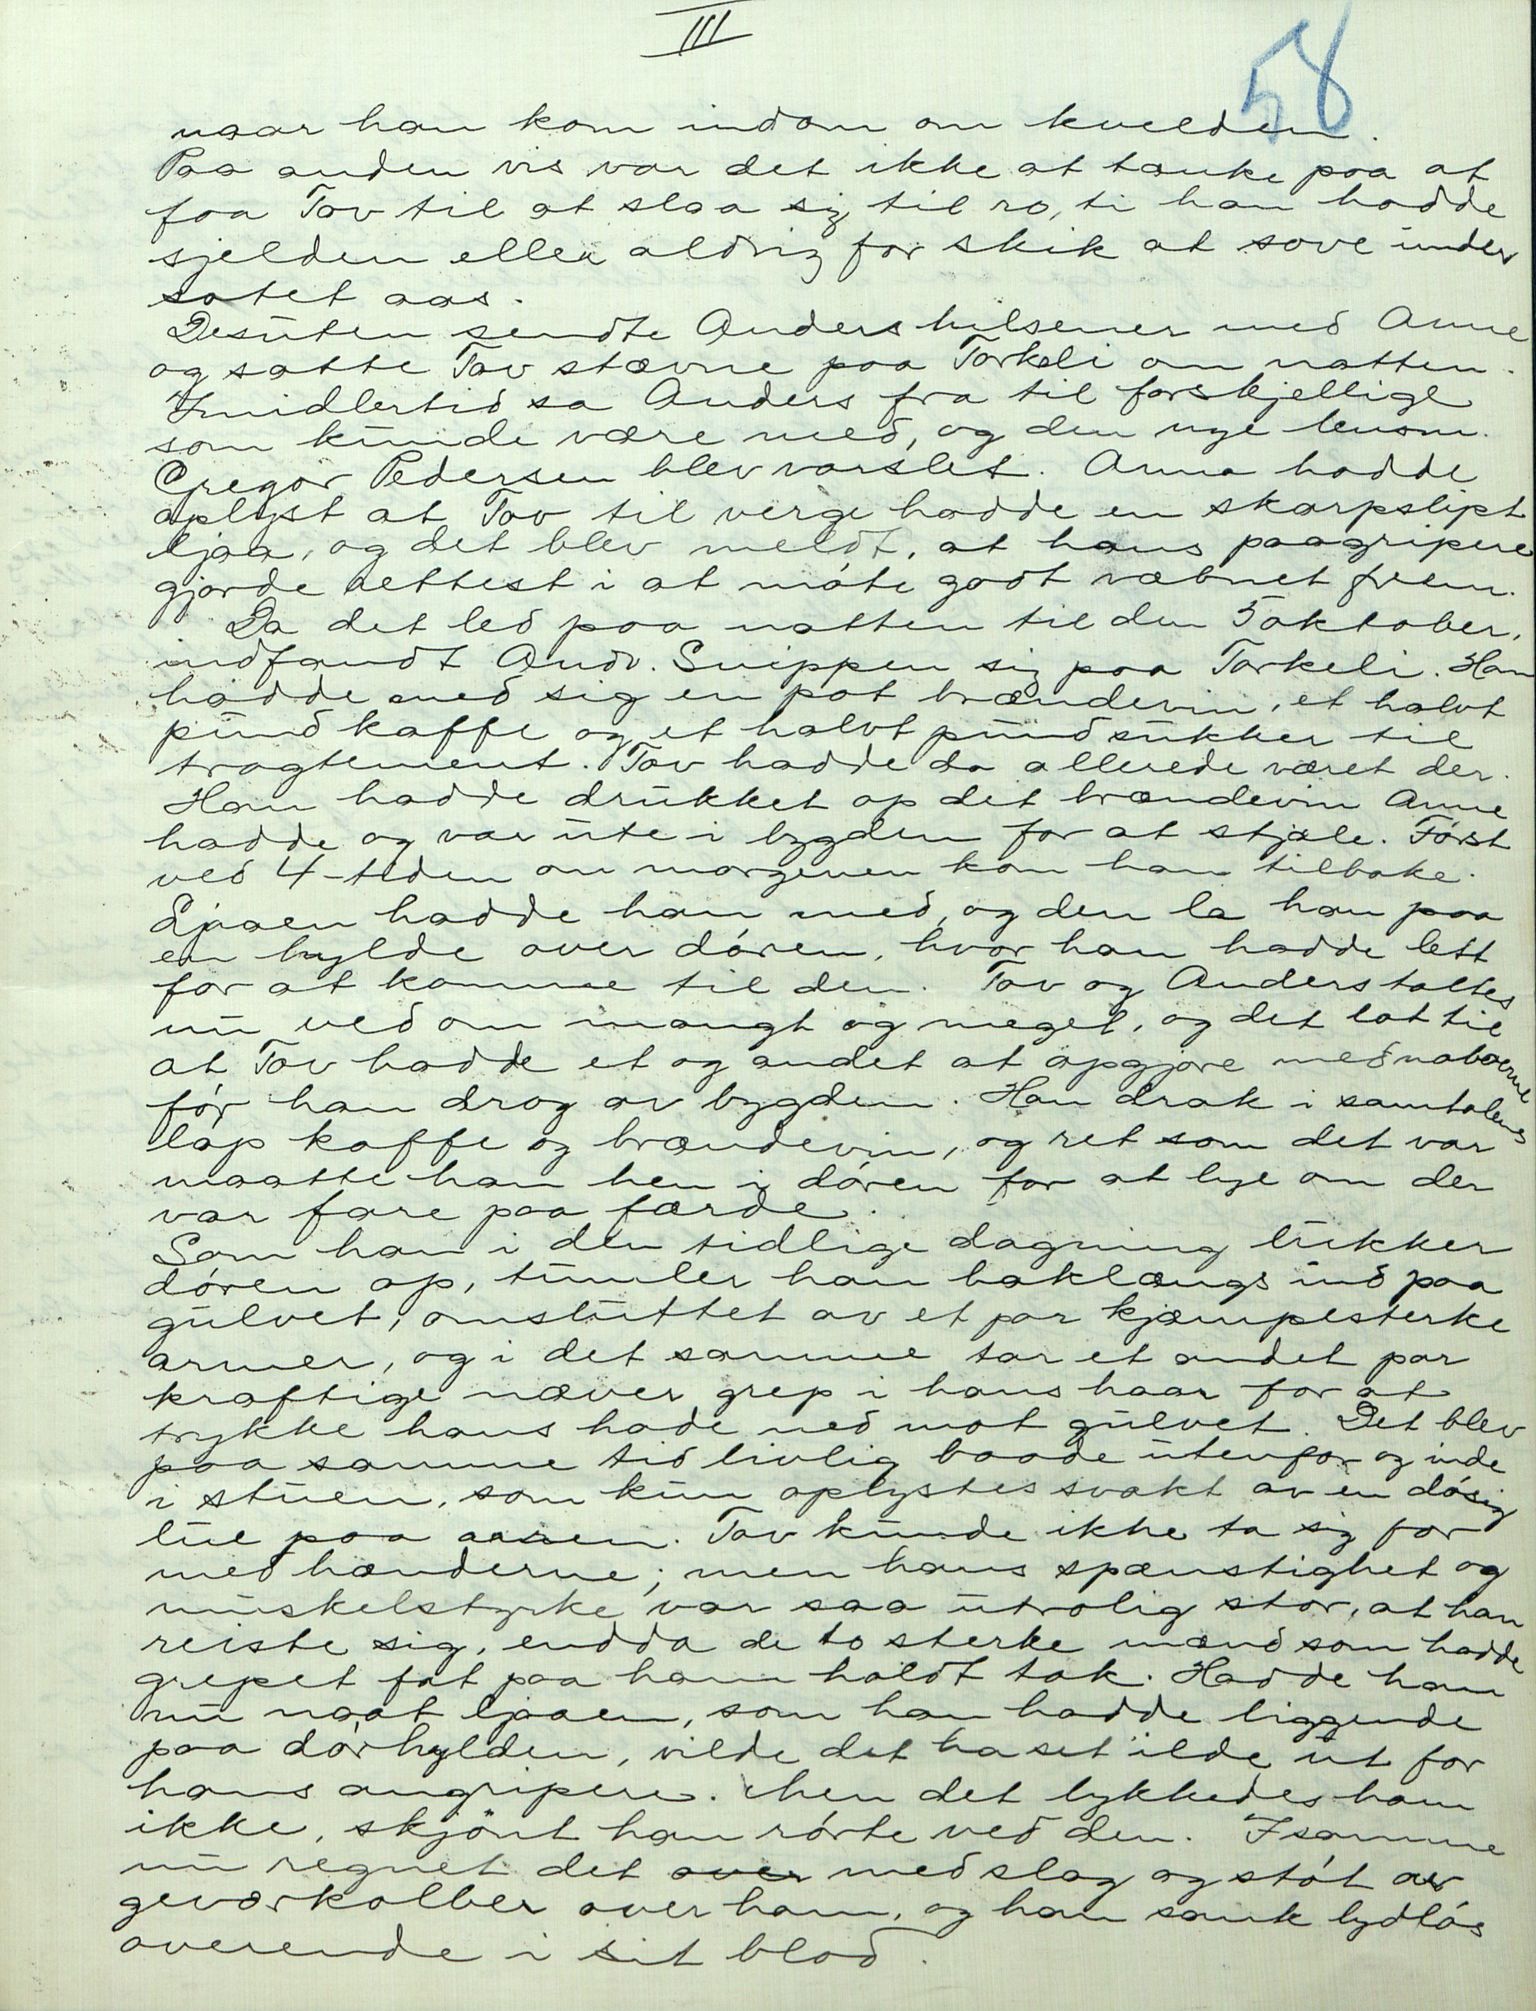 III
58
naar han kom indom om kvelden.
Paa anden vis var det ikke at tænke paa at
faa Tov til at slaa sig til ro, ti han hadde
sjelden eller aldrig for skik at sove under
sotet aas.
Desuten sendte Anders hilsener med Anne
og satte Tov stævne paa Torkeli om natten.
Imidlertid sa Anders fra til forskjellige
som kunde være med, og den nye lensm.
Gregor Pedersen blev varslet. Anna hadde
oplyst at Tov til verge hadde en skarpslipt
ljaa, og det blev meldt, at hans paagripere
gjorde rettest i at møte godt væbnet frem.
Da det led paa natten til den 5 oktober,
indfandt Andr. Snippen sig paa Torkeli. Han
hadde med sig en pot brændevin, et halvt
pund kaffe og et halvt pund sukker til
tragtement. Tov hadde da allerede været der.
Han hadde drukket op det brændevin Anne
hadde og var ute i bygden for at stjæle. Først
ved 4-tiden om morgenen kom han tilbake.
Ljaaen hadde han med, og den la han paa
en hylde over døren, hvor han hadde lett
for at komme til den. Tov og Anders taltes
nu ved om mangt og meget, og det lot til
at Tov hadde et og andet at opgjøre med naboerne
før han drog av bygden. Han drak i samtalens
løp kaffe og brændevin, og ret som det var
maatte han hen i døren for at lye om der
var fare paa færde.
Som han i den tidlige dagning lukker
døren op, tumler han baklængs ind paa
gulvet, omsluttet av et par kjæmpesterke
armer, og i det samme tar et andet par
kraftige næver grep i hans haar for at
trykke hans hode ned mot gulvet. Det blev
paa samme tid livlig baade utenfor og inde
i stuen, som kun oplystes svakt av en døsig
lue paa aasen. Tov kunde ikke ta sig for
med hænderne; men hans spænstighet og
muskelstyrke var saa utrolig stor, at han
reiste sig, endda de to sterke mænd som hadde
grepet fat paa ham holdt tak. Hadde han
nu naat ljaaen, som han hadde liggende
paa dørhylden, vilde det ha set ilde ut for
hans angripere. Men det lykkedes ham
ikke, skjønt han rørte ved den. I samme
nu regnet det over med slag og støt av
geværkolber over ham, og han sank lydløs
overende i sit blod.